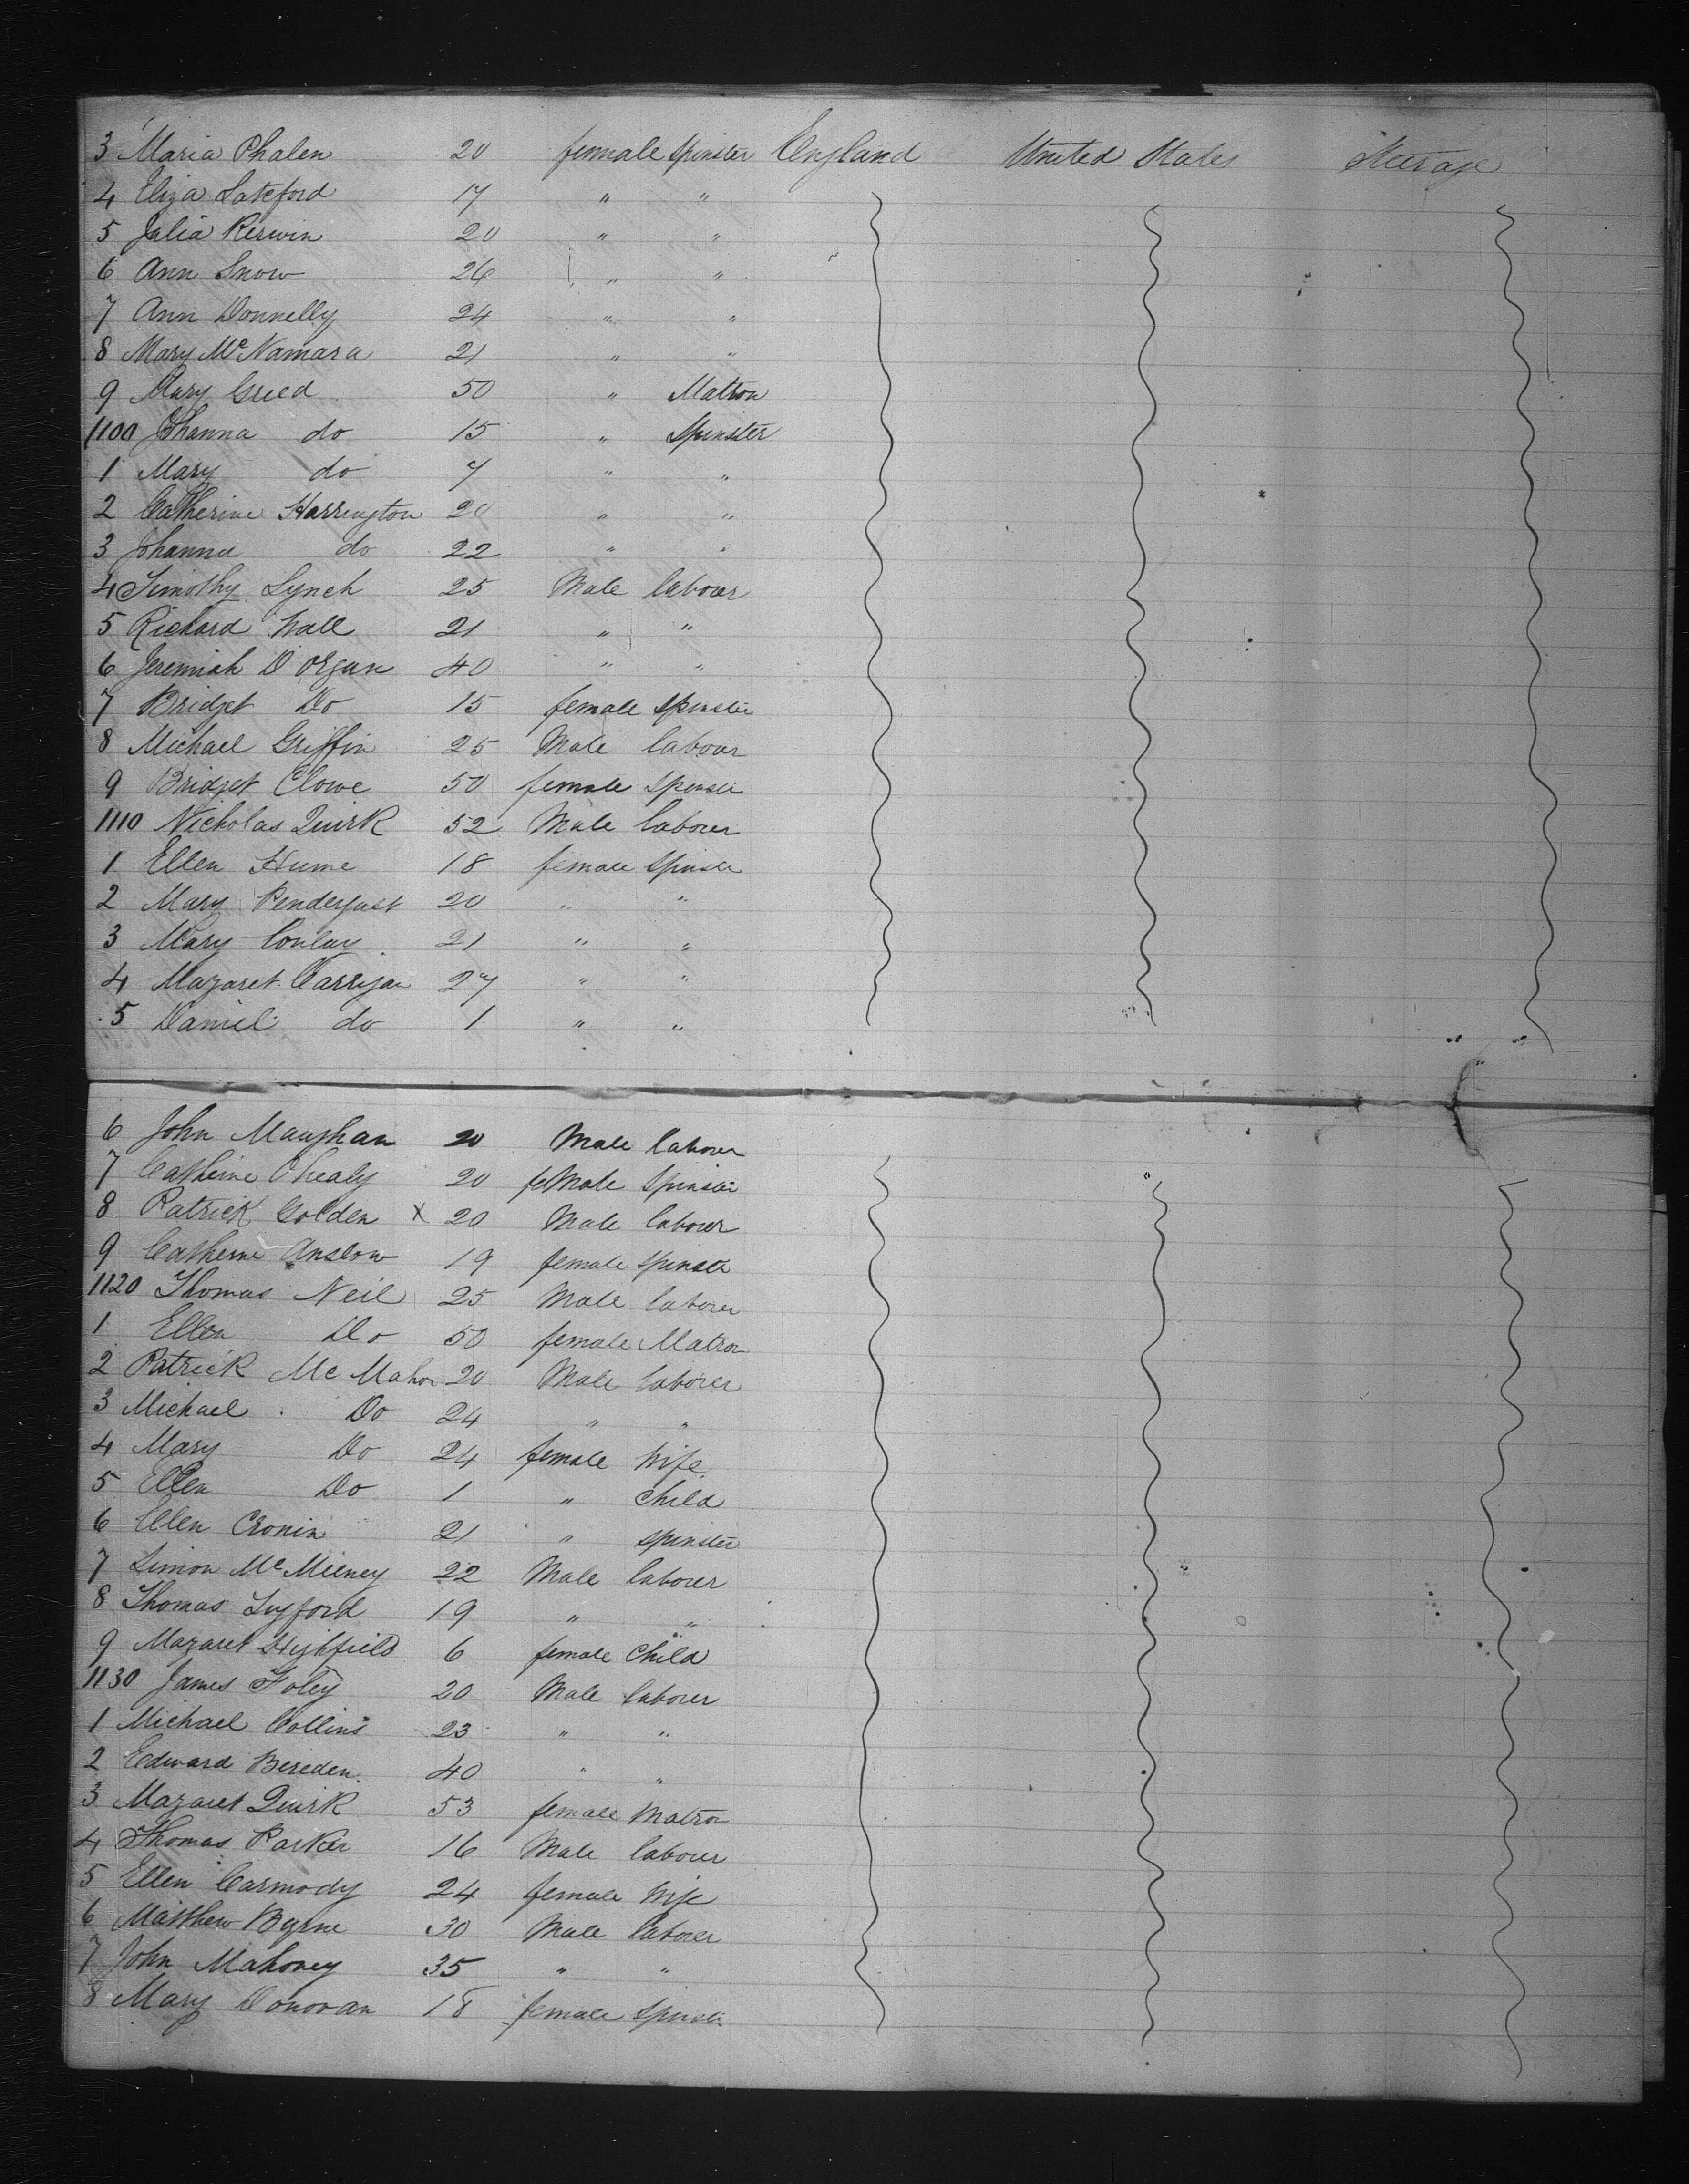 3 Maria Phalen 20 female Spinster England United States Steerage
4 Eliza Lateford 17 " "
5 Julia Kerwin 20 " "
6 Ann Snow 26 " "
7 Ann Donnelly 24 " "
8 Mary McNamara 21 " "
9 Mary Greed 50 " Matron
1100 Johanna do 15 " Spinster
1 Mary do 7 " "
2 Catherine Harrington 20 " "
3 Johanna do 22 " "
4 Timothy Lynch 25 Male labourer
5 Richard Wall 21 " "
6 Jeremiah D Organ 40 " "
7 Bridget Do 15 female Spinster
8 Michael Griffin 25 Male labour
9 Bridget Clowe 50 female Spinster
1110 Nicholas Quirk 52 Male laborer
1 Ellen Hume 18 female Spinster
2 Mary Pendergast 20 " "
3 Mary Conlay 21 " "
4 Magaret Carrigan 27 " "
5 Daniel do 1 " "
6 John Maughan 20 Male laborer
7 Catherine Ohealy 20 feMale Spinster
8 Patrick Golden X 20 Male labourer
9 Catherine Anslow 19 female Spinster
1120 Thomas Neil 25 Male laborer
1 Ellen Do 50 female Matron
2 Patrick Mc Mahon 20 Male laborer
3 Michael Do 24 " "
4 Mary Do 24 female Wife
5 Ellen Do 1 " Child
6 Ellen Cronin 21 " Spinster
7 Simon McMieney 22 Male laborer
8 Thomas Lyford 19 " "
9 Magaret Highfield 6 female Child
1130 James Foley 20 Male laborer
1 Michael Collins 23 " "
2 Edward Bereden 40 " "
3 Magaret Quirk 53 female Matron
4 Thomas Parker 16 Male labourer
5 Ellen Carmody 24 female Wife
6 Matthew Byrne 30 Male laborer
7 John Mahoney 35 " "
8 Mary Donovan 18 female Spinster